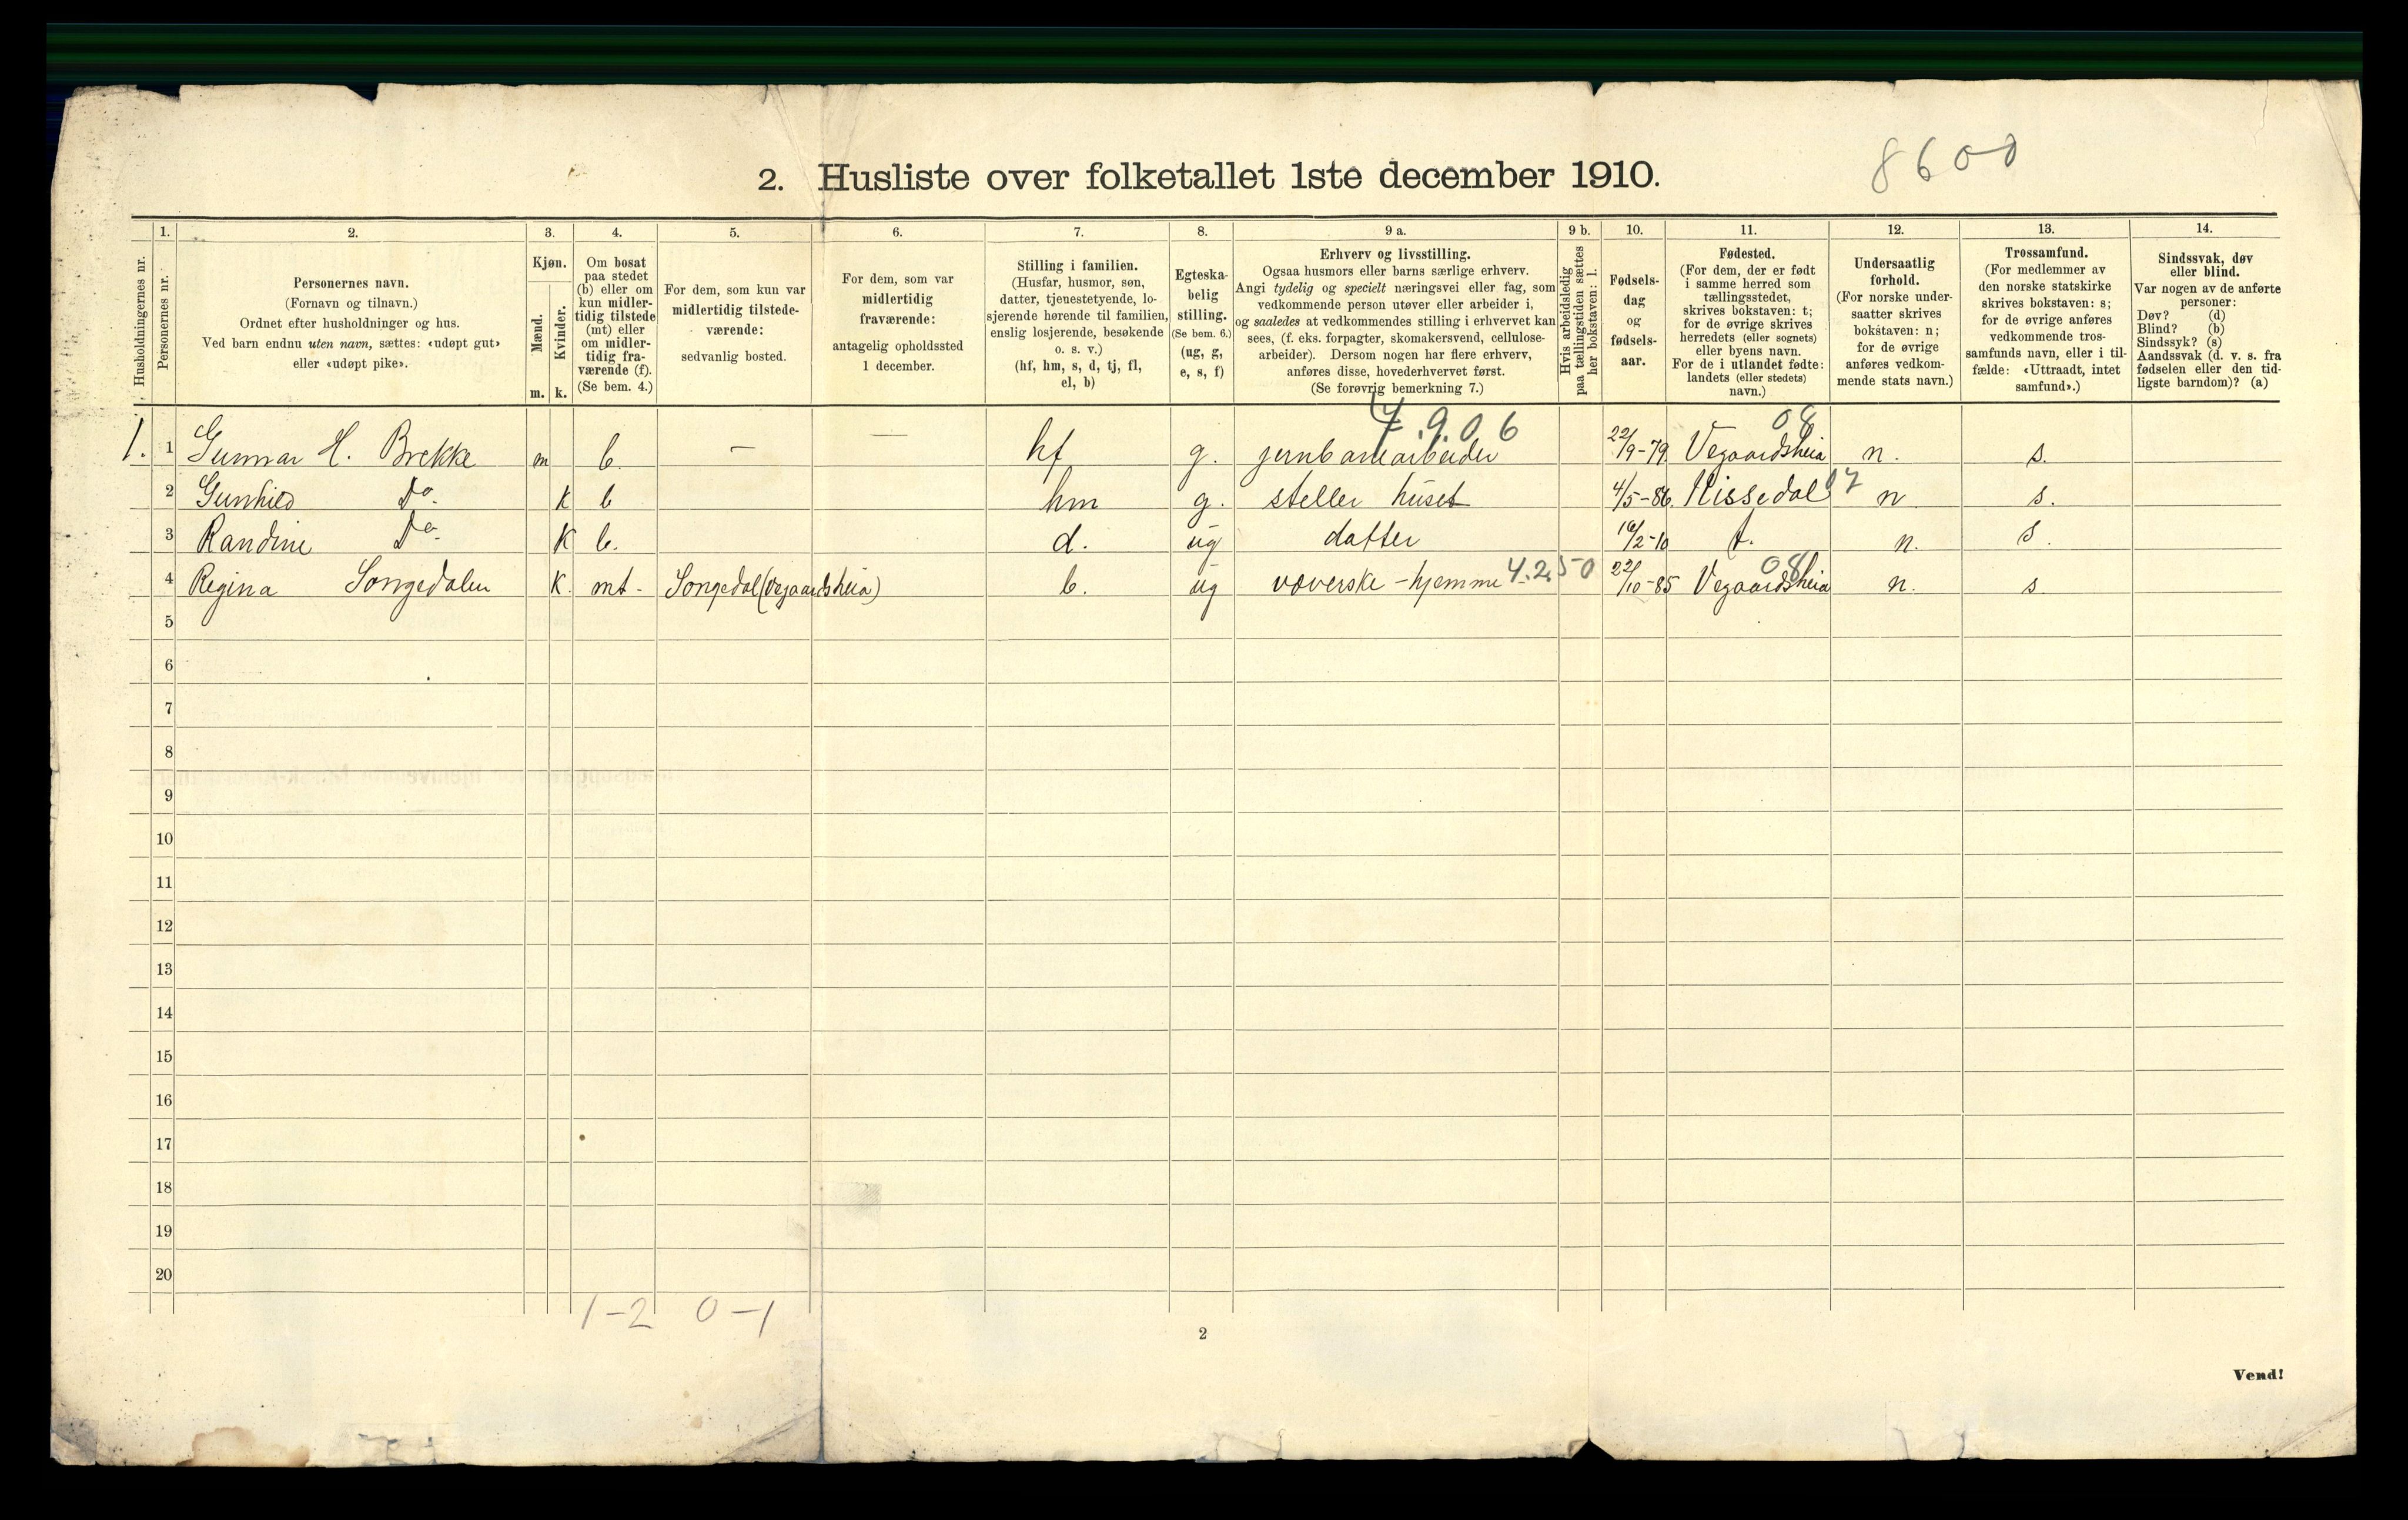 8600
2. Husliste over folketallet 1ste december 1910.
Husholdningernes nr.
1.
Personernes nr.
2.
Personernes navn.
(Fornavn og tilnavn.)
Ordnet efter husholdninger og hus.
Ved barn endnu uten navn, sættes: «udøpt gut»
eller «udøpt pike».
3.
Kjøn.
Mænd.
Kvinder.
m. k.
4.
Om bosat
paa stedet
(b) eller om
kun midler-
tidig tilstede
(mt) eller
om midler-
tidig fra-
værende (f).
(Se bem. 4.)
5.
For dem, som kun var
midlertidig tilstede-
værende:
sedvanlig bosted.
6.
For dem, som var
midlertidig
fraværende:
antagelig opholdssted
1 december.
7.
Stilling i familien.
(Husfar, husmor, søn,
datter, tjenestetyende, lo-
sjerende hørende til familien,
enslig losjerende, besøkende
o. s. v.)
(hf, hm, s, d, tj, fl,
el, b)
8.
Egteska-
belig
stilling.
(Se bem. 6.)
(ug, g,
e, s, f)
9 a.
Erhverv og livsstilling.
Ogsaa husmors eller barns særlige erhverv.
Angi tydelig og specielt næringsvei eller fag, som
vedkommende person utøver eller arbeider i,
og saaledes at vedkommendes stilling i erhvervet kan
sees, (f. eks. forpagter, skomakersvend, cellulose-
arbeider). Dersom nogen har flere erhverv,
anføres disse, hovederhvervet først.
(Se forøvrig bemerkning 7.)
9 b.
Hvis arbeidsledig
paa tællingstiden sættes
her bokstaven: l.
10.
Fødsels-
dag
og
fødsels-
aar.
11.
Fødested.
(For dem, der er født
i samme herred som
tællingsstedet,
skrives bokstaven: t;
for de øvrige skrives
herredets (eller sognets)
eller byens navn.
For de i utlandet fødte:
landets (eller stedets)
navn.)
12.
Undersaatlig
forhold.
(For norske under-
saatter skrives
bokstaven: n;
for de øvrige
anføres vedkom-
mende stats navn.)
13.
Trossamfund.
(For medlemmer av
den norske statskirke
skrives bokstaven: s;
for de øvrige anføres
vedkommende tros-
samfunds navn, eller i til-
fælde: «Uttraadt, intet
samfund».)
14.
Sindssvak, døv
eller blind.
Var nogen av de anførte
personer:
Døv? (d)
Blind? (b)
Sindssyk? (s)
Aandssvak (d. v. s. fra
fødselen eller den tid-
ligste barndom)? (a)
7.9.06 08
1. 1 Gunnar H. Brekke m b. — — hf g. jernbanearbeider 22/9-79 Vegaardsheia n. s.
2 Gunhild Do. K b hm g. steller huset 4/5-86. Hissedal 07 n s.
3 Randine Do. K b. d. ug datter 16/2-10 t. n. s.
4 Regina Songedalen K. mt. Songedal (Vegaardsheia) b. ug væverske - hjemme 4.2.50 22/10-85 Vegaardsheia 08 n. s.
5
6
7
8
9
10
11
12
13
14
15
16
17
18
19
20
1-2 0-1
2
Vend!